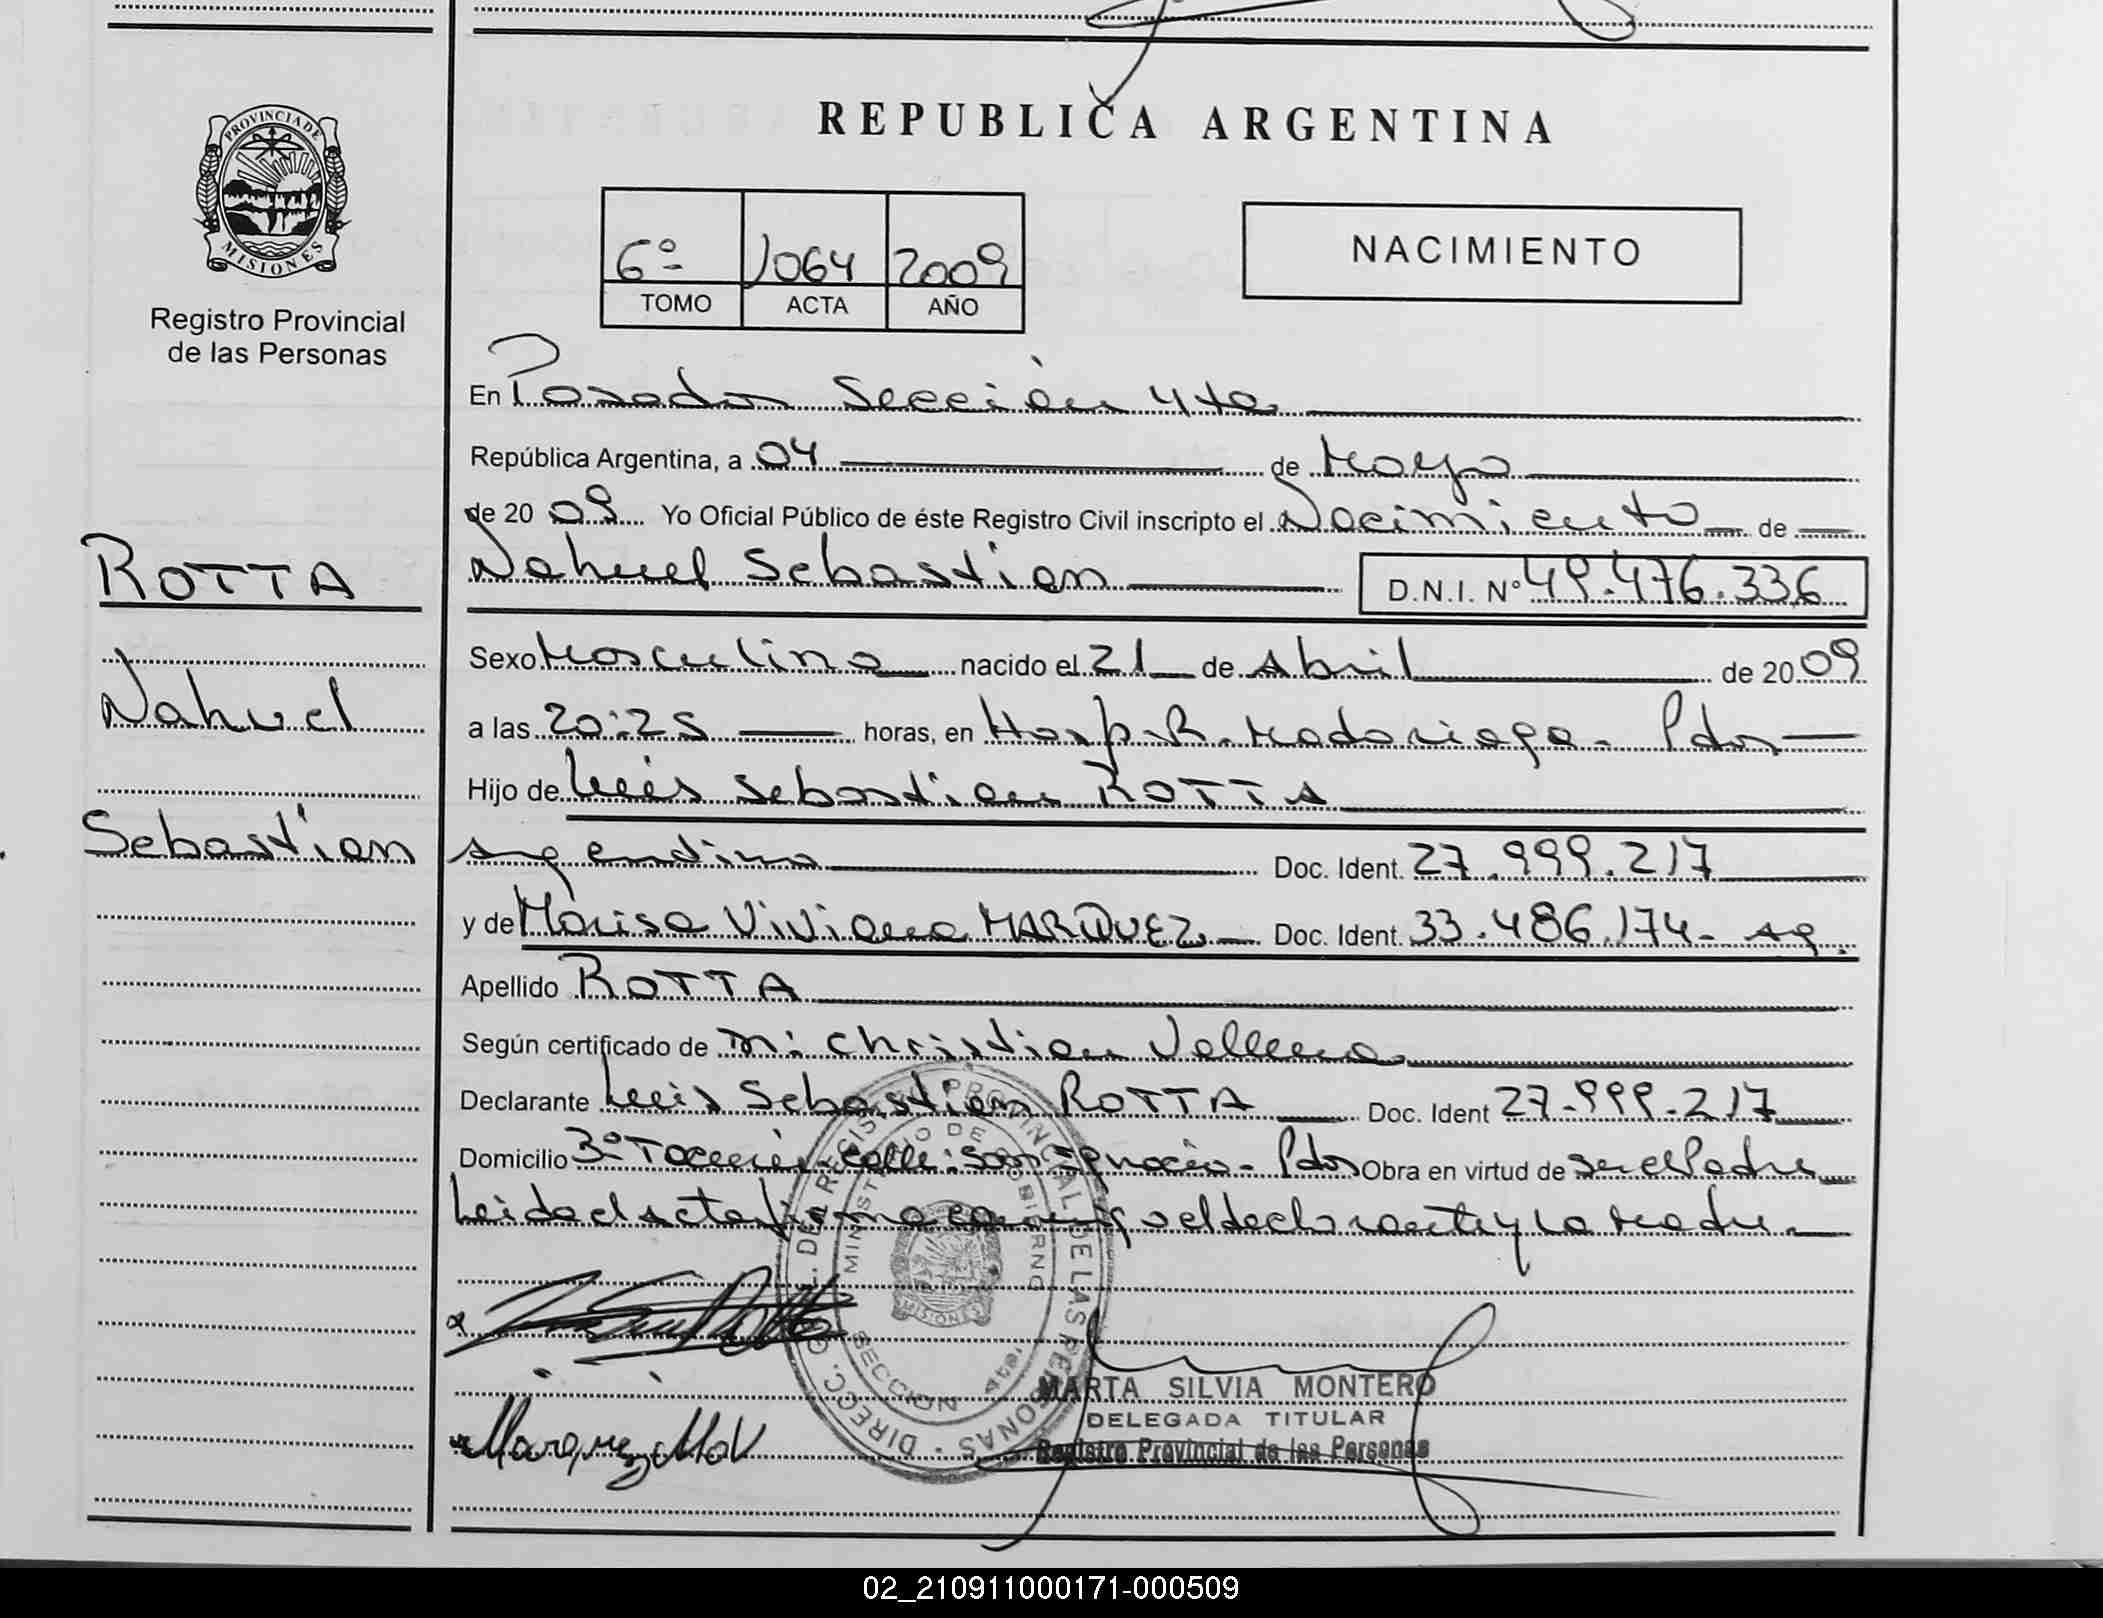 REPUBLICA ARGENTINA
PROVINCIA DE
MISIONES
Registro Provincial
de las Personas
6º 1064 2009
TOMO ACTA AÑO
NACIMIENTO
En Posadas Sección 4ta
República Argentina, a 04 de Mayo
de 2009 Yo Oficial Público de éste Registro Civil inscripto el Nacimiento de
Nahuel Sebastian D.N.I. Nº 49.476.336
ROTTA
Nahuel
Sebastian
Sexo Masculino nacido el 21 de Abril de 2009
a las 20:25 horas, en Hosp. R. Madariaga - Pdas
Hijo de Luis Sebastian ROTTA
Argentino Doc. Ident. 27.999.217
y de Marisa Viviana MARQUEZ Doc. Ident. 33.486.174 - Arg.
Apellido ROTTA
Según certificado de Christian
Declarante Luis Sebastian ROTTA Doc. Ident 27.999.217
Domicilio calle: San Ignacio - Pdas Obra en virtud de ser el Padre
Leida el acta firma conmigo el declarante y la Madre
DIRECC. GL. DEL REGISTRO PROVINCIAL DE LAS PERSONAS
MINISTERIO DE GOBIERNO
MISIONES
SECCION 4ta.
Marquez
MARTA SILVIA MONTERO
DELEGADA TITULAR
Registro Provincial de las Personas
02_210911000171-000509